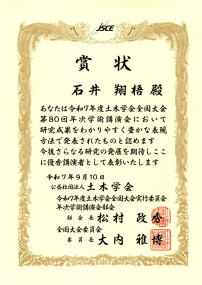 JSCE
賞状
石井 翔梧 殿
あなたは令和7年度土木学会全国大会
第80回年次学術講演会において
研究成果をわかりやすく豊かな表現
方法で発表されたものと認めます
今後さらなる研究の発展を期待しここ
に優秀講演者として表彰いたします
令和7年9月10日
公益社団法人 土木学会
令和7年度土木学会全国大会実行委員会
年次学術講演会部会
部会長 松村 政秀
全国大会委員会
委員長 大内 雅博